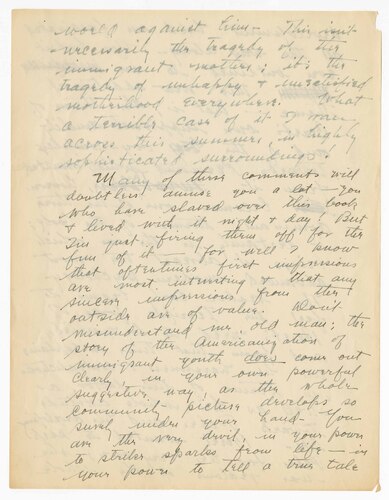 world against him — This isn't
necessarily the tragedy of the
immigrant mother; it's the
tragedy of unhappy & unsatisfied
motherhood everywhere. What
a terrible case of it I ran
across this summer, in highly
sophisticated surroundings!
Many of these comments will
doubtless amuse you a lot — you
who have slaved over this book
& lived with it night & day! But
I'm just firing them off for the
fun of it — for well I know
that oftentimes first impressions
are most interesting & that any
sincere impressions from the
outside are of value. Don't
misunderstand me, old man; the
story of the Americanization of
immigrant youth does come out
clearly, in your own powerful
suggestive way, as the whole
community picture develops so
surely under your hand — You
are the very devil, in your power
to strike sparks from life — in
your power to tell a true tale